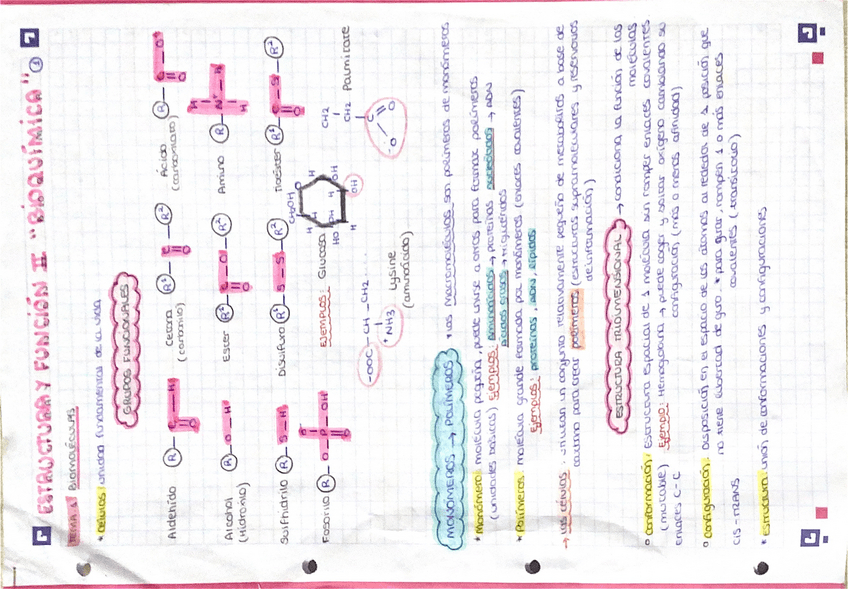 ESTRUCTURA Y FUNCIÓN II "BIOQUÍMICA"
TEMA 1: Biomoléculas
* Células: unidad fundamental de la vida
GRUPOS FUNCIONALES
Aldehído
R C H O
Cetona
(carbonilo)
R¹ C R² O
Ácido
(carboxilato)
R C O⁻ O
Alcohol
(Hidroxilo)
R O H
Ester
R¹ C O R² O
Amino
R N⁺ H H H
Sulfhidrilo
R S H
Disulfuro
R¹ S S R²
Tioéster
R¹ C S R² O
Fosforilo
R O P OH
EJEMPLOS: Glucosa
CH₂OH O H H OH H HO H OH
Palmitate
CH₂ CH₂ C O O
-OOC - CH - CH₂ ...
+NH₃
Lysine
(aminoácido)
MONÓMEROS → POLÍMEROS * las macromoléculas son polímeros de monómeros
* Monómero: molécula pequeña, puede unirse a otras para formar polímeros
(unidades básicas) Ejemplos: Aminoácidos → proteínas nucleótidos → ADN
ácidos grasos → triglicéridos
* Polímeros: molécula grande formada por monómeros (enlaces covalentes)
Ejemplos: proteínas, ADN, lípidos
→ Las células: utilizan un conjunto relativamente pequeño de metabolitos a base de
carbono para crear polímeros (estructuras supramoleculares y reservorios
de información)
ESTRUCTURA TRIDIMENSIONAL → condiciona la función de las
moléculas
○ Conformación: Estructura espacial de 1 molécula sin romper enlaces covalentes
(mutable) Ejemplo: Hemoglobina → puede coger y soltar oxígeno cambiando su
enlaces C-C configuración (más o menos afinidad)
○ Configuración: Disposición en el espacio de los átomos al rededor de 1 posición que
no tiene libertad de giro. * para girar, rompen 1 o más enlaces
CIS - TRANS covalentes (transitorio)
* Estructura: unión de conformaciones y configuraciones